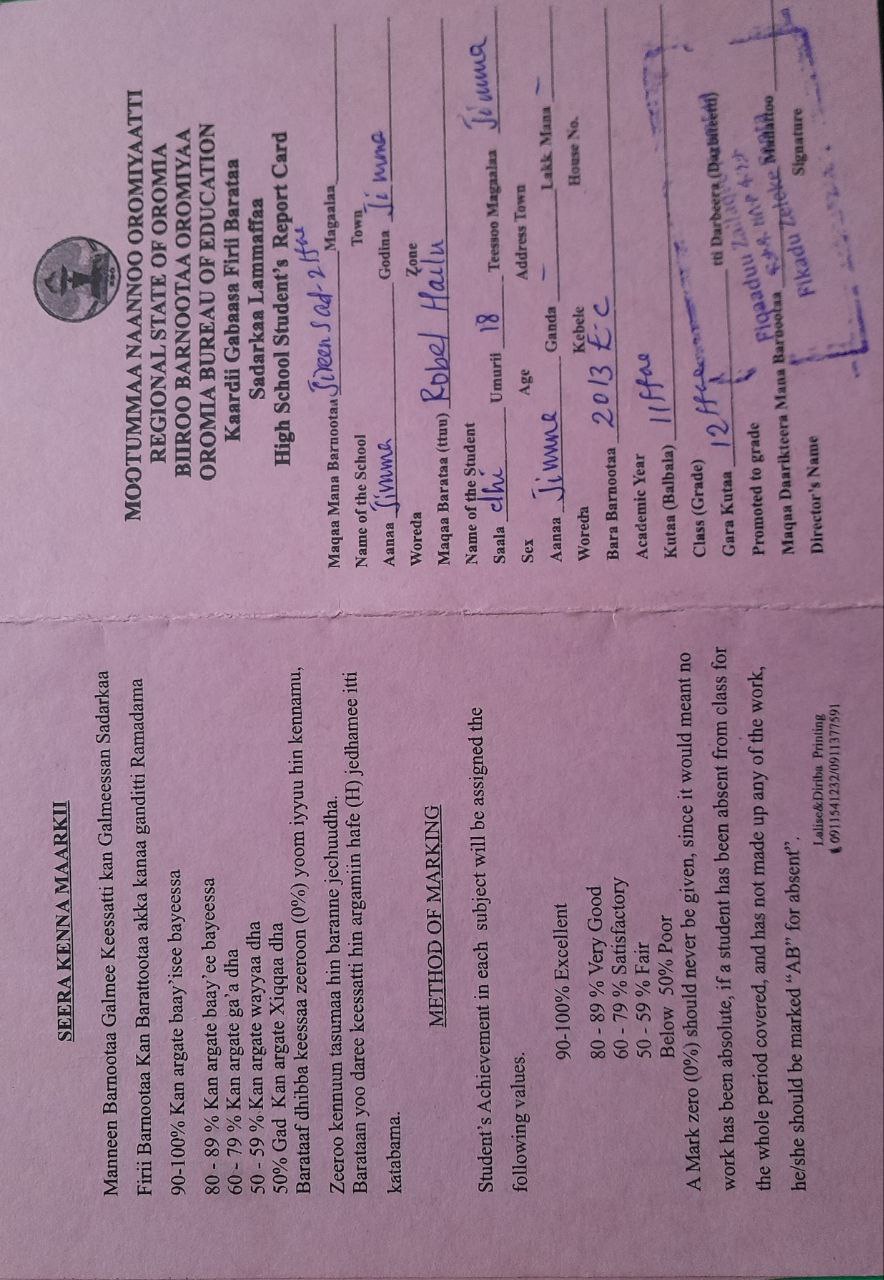 SEERA KENNA MAARKII
Manneen Barnootaa Galmee Keessatti kan Galmeessan Sadarkaa
Firii Barnootaa Kan Barattootaa akka kanaa ganditti Ramadama
90-100% Kan argate baay'isee bayeessa
80 - 89 % Kan argate baay'ee bayeessa
60 - 79 % Kan argate ga'a dha
50 - 59 % Kan argate wayyaa dha
50% Gad Kan argate Xiqqaa dha
Barataaf dhibba keessaa zeeroon (0%) yoom iyyuu hin kennamu,
Zeeroo kennuun tasumaa hin baranne jechuudha.
Barataan yoo daree keessatti hin argamiin hafe (H) jedhamee itti
katabama.
METHOD OF MARKING
Student's Achievement in each subject will be assigned the
following values.
90-100% Excellent
80 - 89 % Very Good
60 - 79 % Satisfactory
50 - 59 % Fair
Below 50% Poor
A Mark zero (0%) should never be given, since it would meant no
work has been absolute, if a student has been absent from class for
the whole period covered, and has not made up any of the work,
he/she should be marked "AB" for absent".
Lalise&Diriba Printing
0911541232/0911377591
MOOTUMMAA NAANNOO OROMIYAATTI
REGIONAL STATE OF OROMIA
BIIROO BARNOOTAA OROMIYAA
OROMIA BUREAU OF EDUCATION
Kaardii Gabaasa Firii Barataa
Sadarkaa Lammaffaa
High School Student's Report Card
Maqaa Mana Barnootaa Magaalaa
Name of the School Town
Aanaa Jimma Godina Jimma
Woreda Zone
Maqaa Barataa (ttuu) Robel Hailu
Name of the Student
Saala dhi Umurii 18 Teessoo Magaalaa Jimma
Sex Age Address Town
Aanaa Jimma Ganda - Lakk Mana -
Woreda Kebele House No.
Bara Barnootaa 2013 E.C
Academic Year
Kutaa (Balbala) 11ffaa
Class (Grade)
Gara Kutaa 12ffaa tti Darbeera (Darbiteetti)
Promoted to grade
Maqaa Daarikteera Mana Barnootaa Mallattoo
Director's Name Signature
Fiqaaduu
Fikadu Zeleke